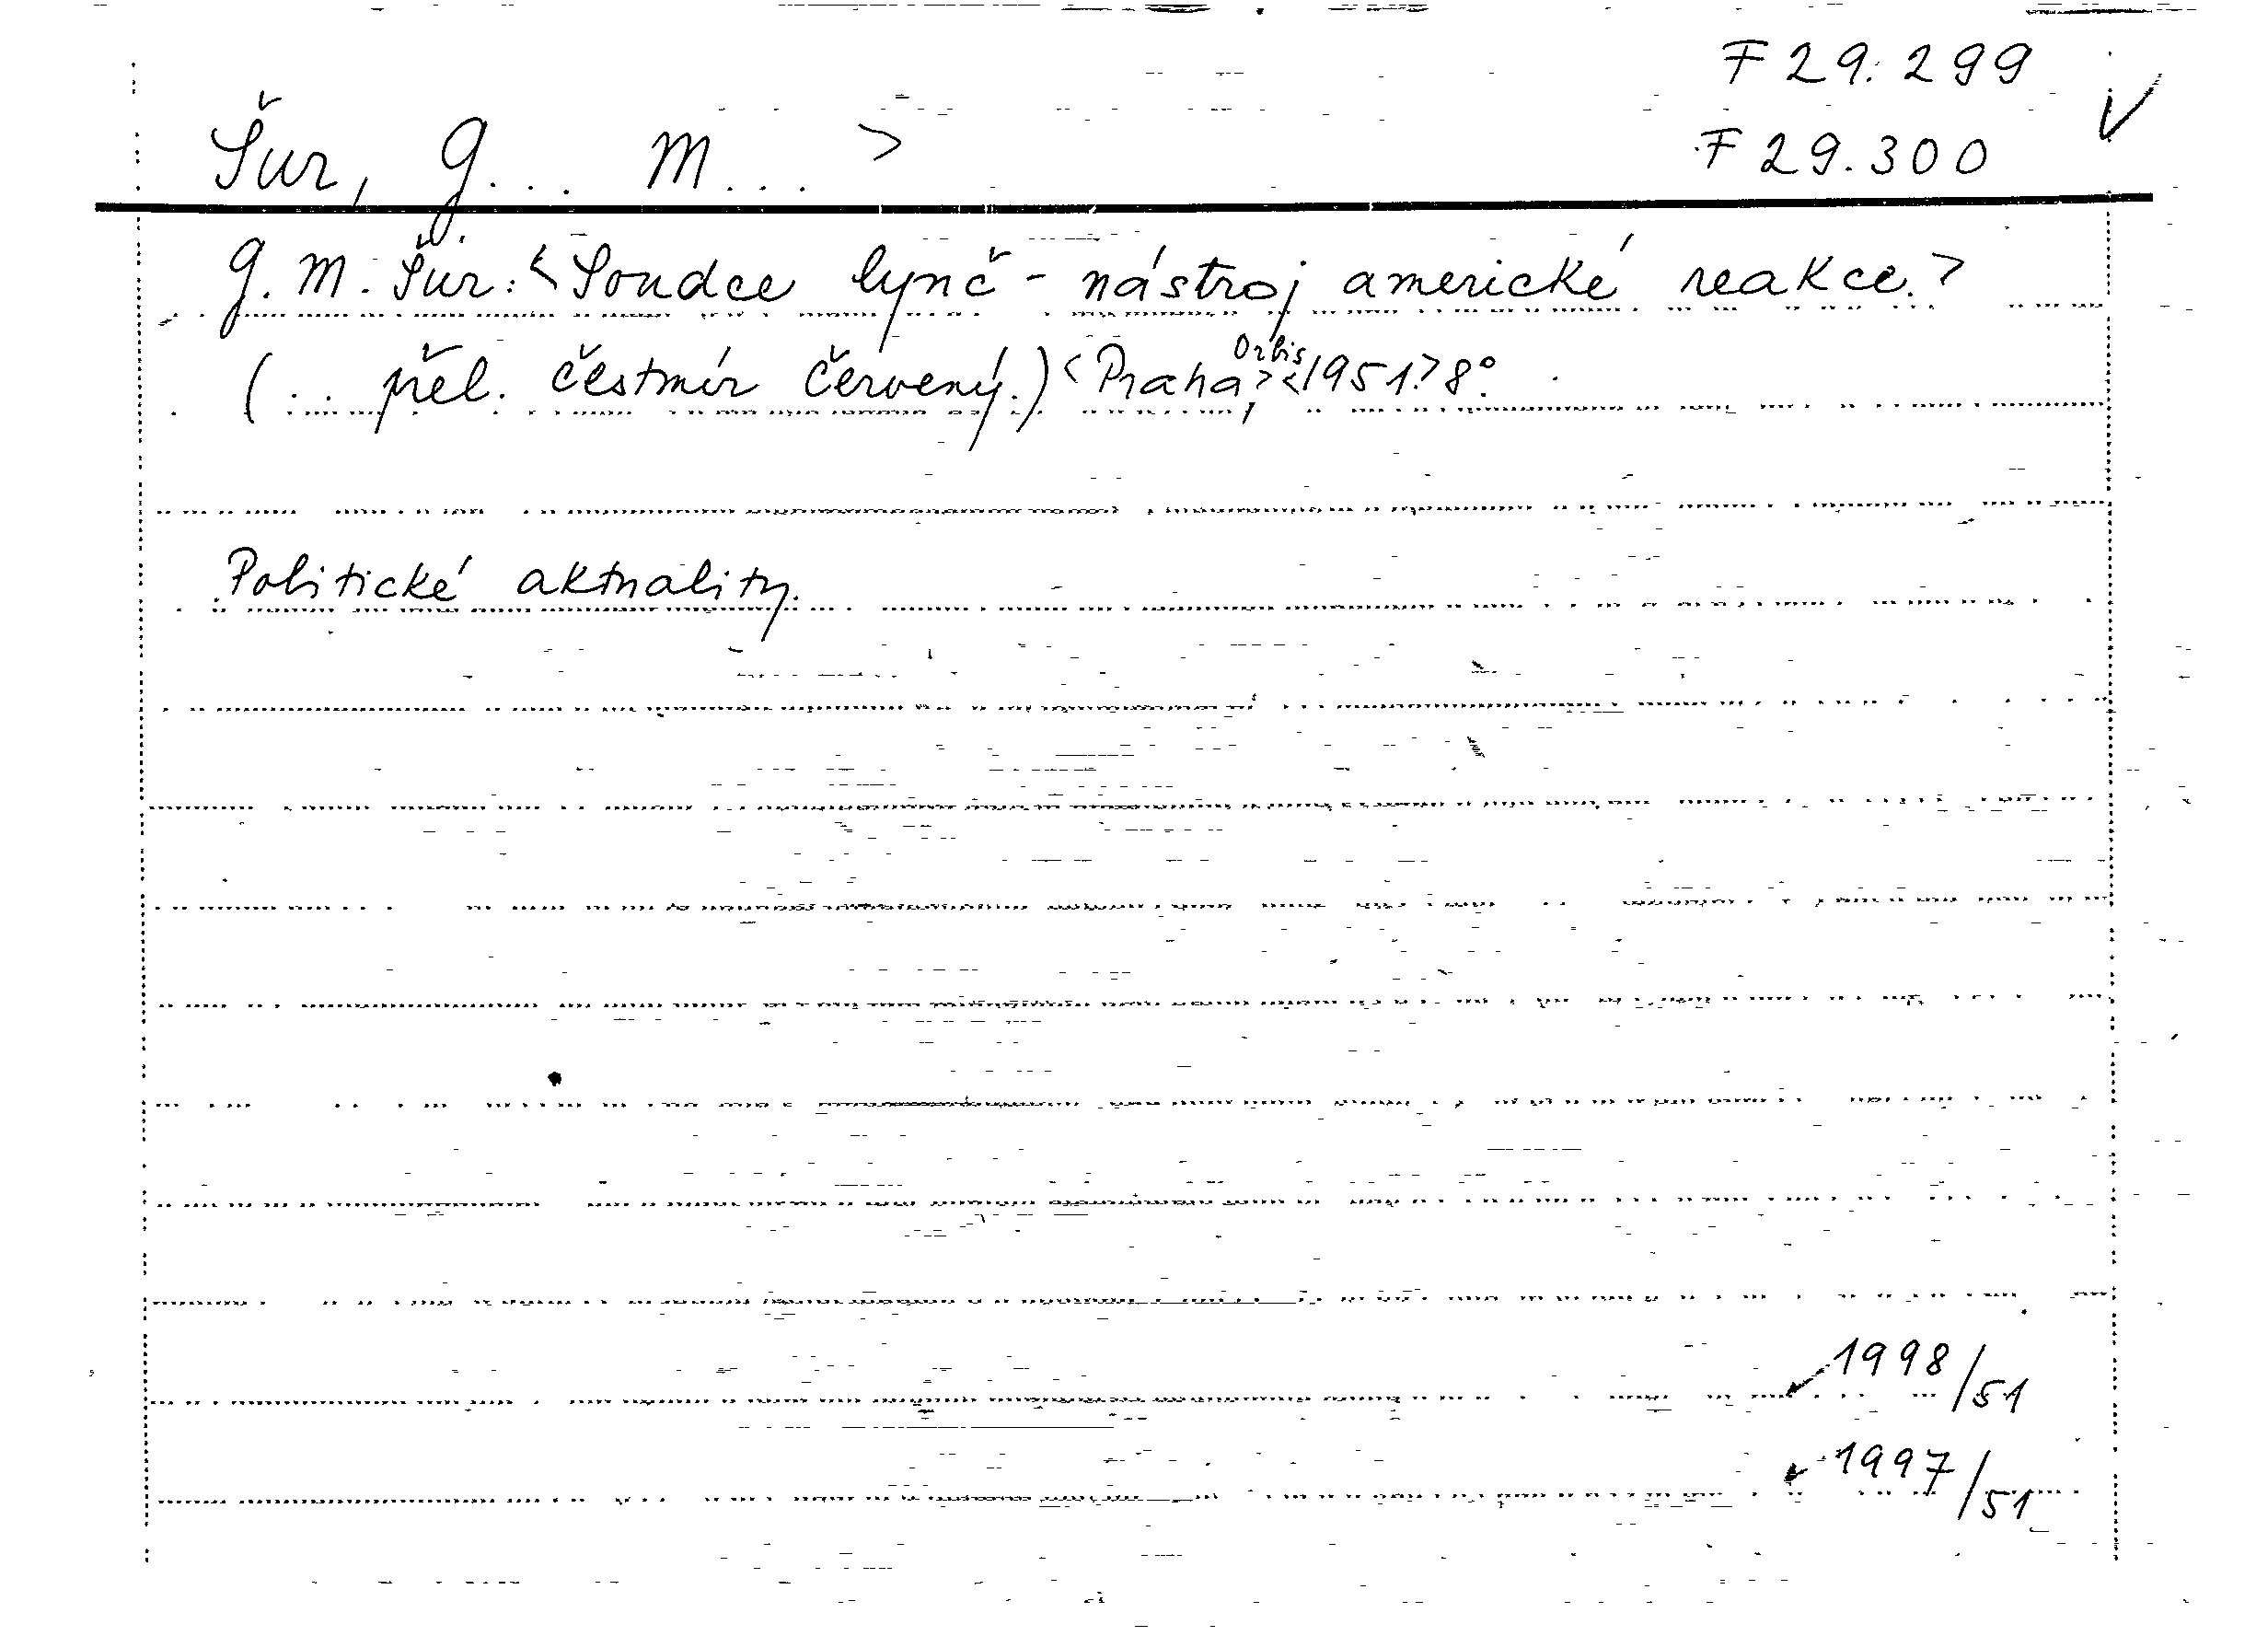 F 29.299
Šur, G... M... >
F 29.300
G. M. Šur: <Soudce lynč - nástroj americké reakce.>
(... přel. Čestmír Červený.) <Praha,> Orbis <1951.> 8°.
Politické aktuality.
1998/51
1997/51